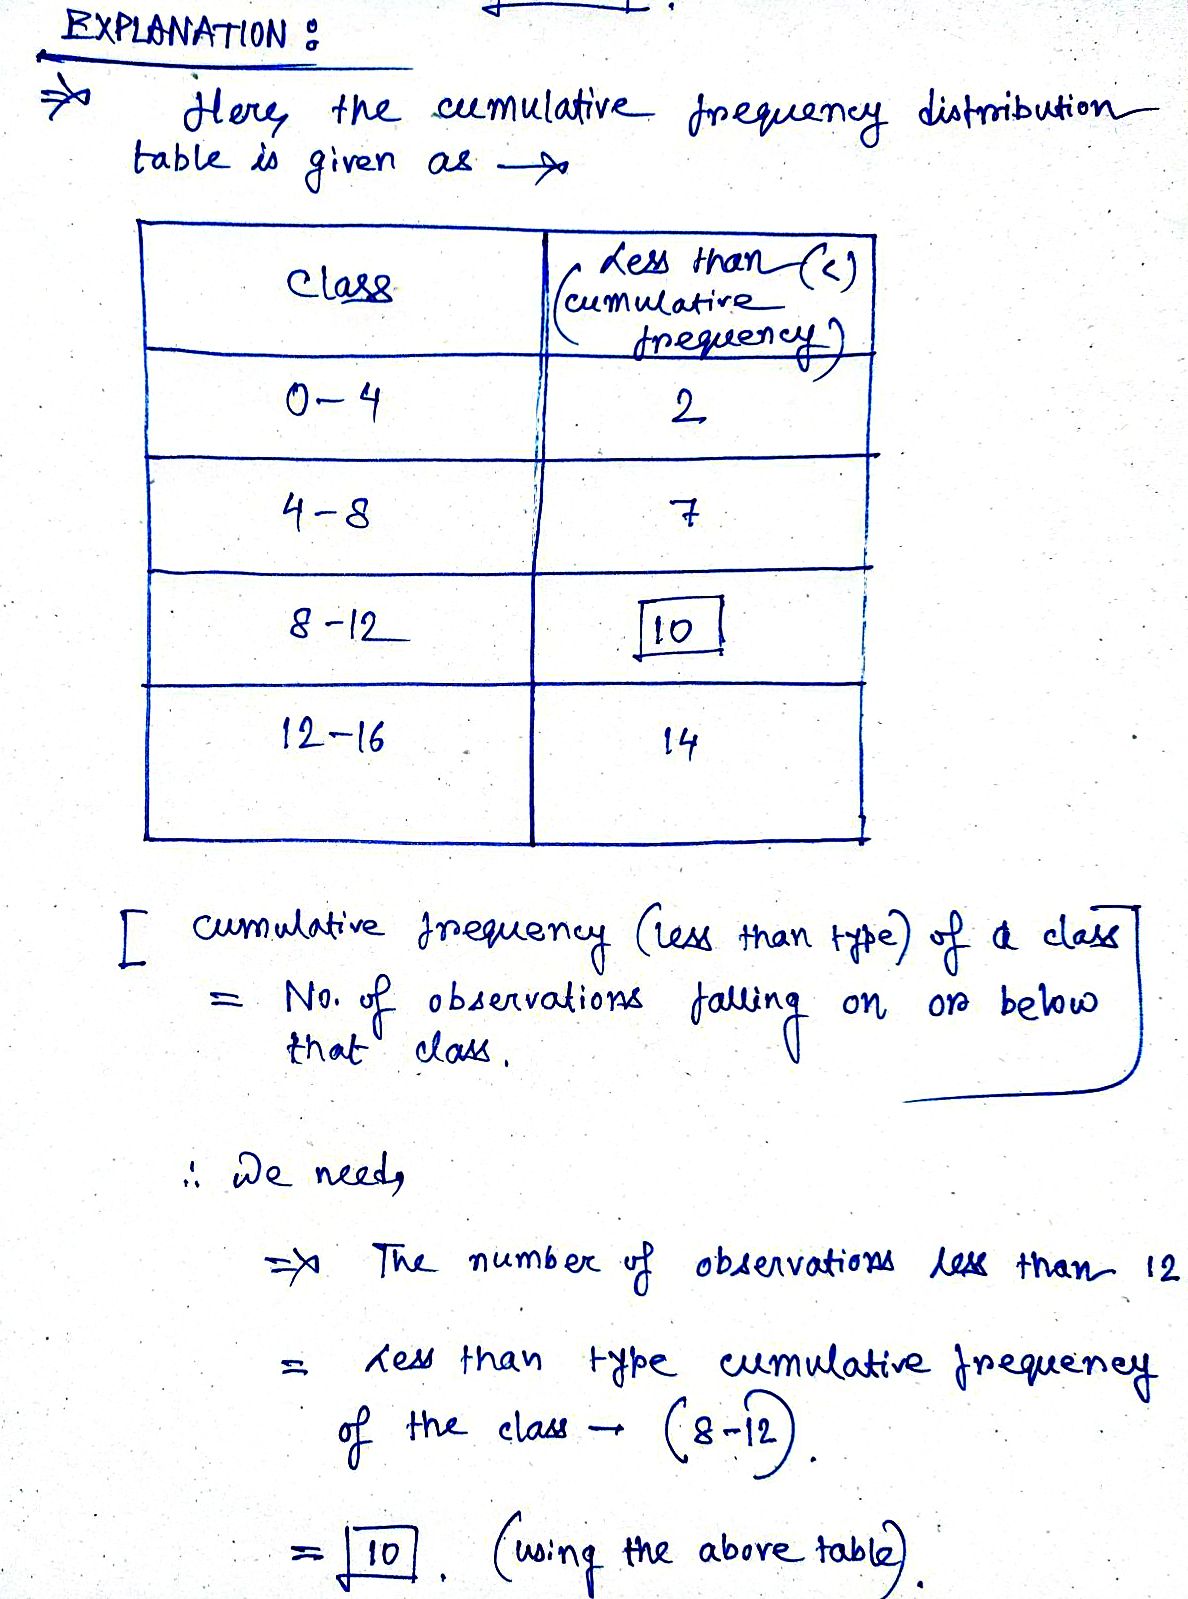 EXPLANATION :
⇒ Here, the cumulative frequency distribution
table is given as →
Class
Less than (<)
(cumulative
frequency)
0-4
2
4-8
7
8-12
10
12-16
14
[ cumulative frequency (less than type) of a class
= No. of observations falling on or below
that class. ]
∴ We need,
⇒ The number of observations less than 12
= Less than type cumulative frequency
of the class → (8-12).
= 10. (using the above table).